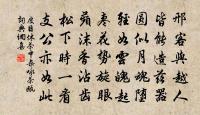 邢客與越人
皆能造茲器
圓似月魂墮
輕如雲魄起
棗花勢旋眼
蘋沫香沾齒
松下時一看
支公亦如此
皮日休茶中雜詠茶甌
詞典網集